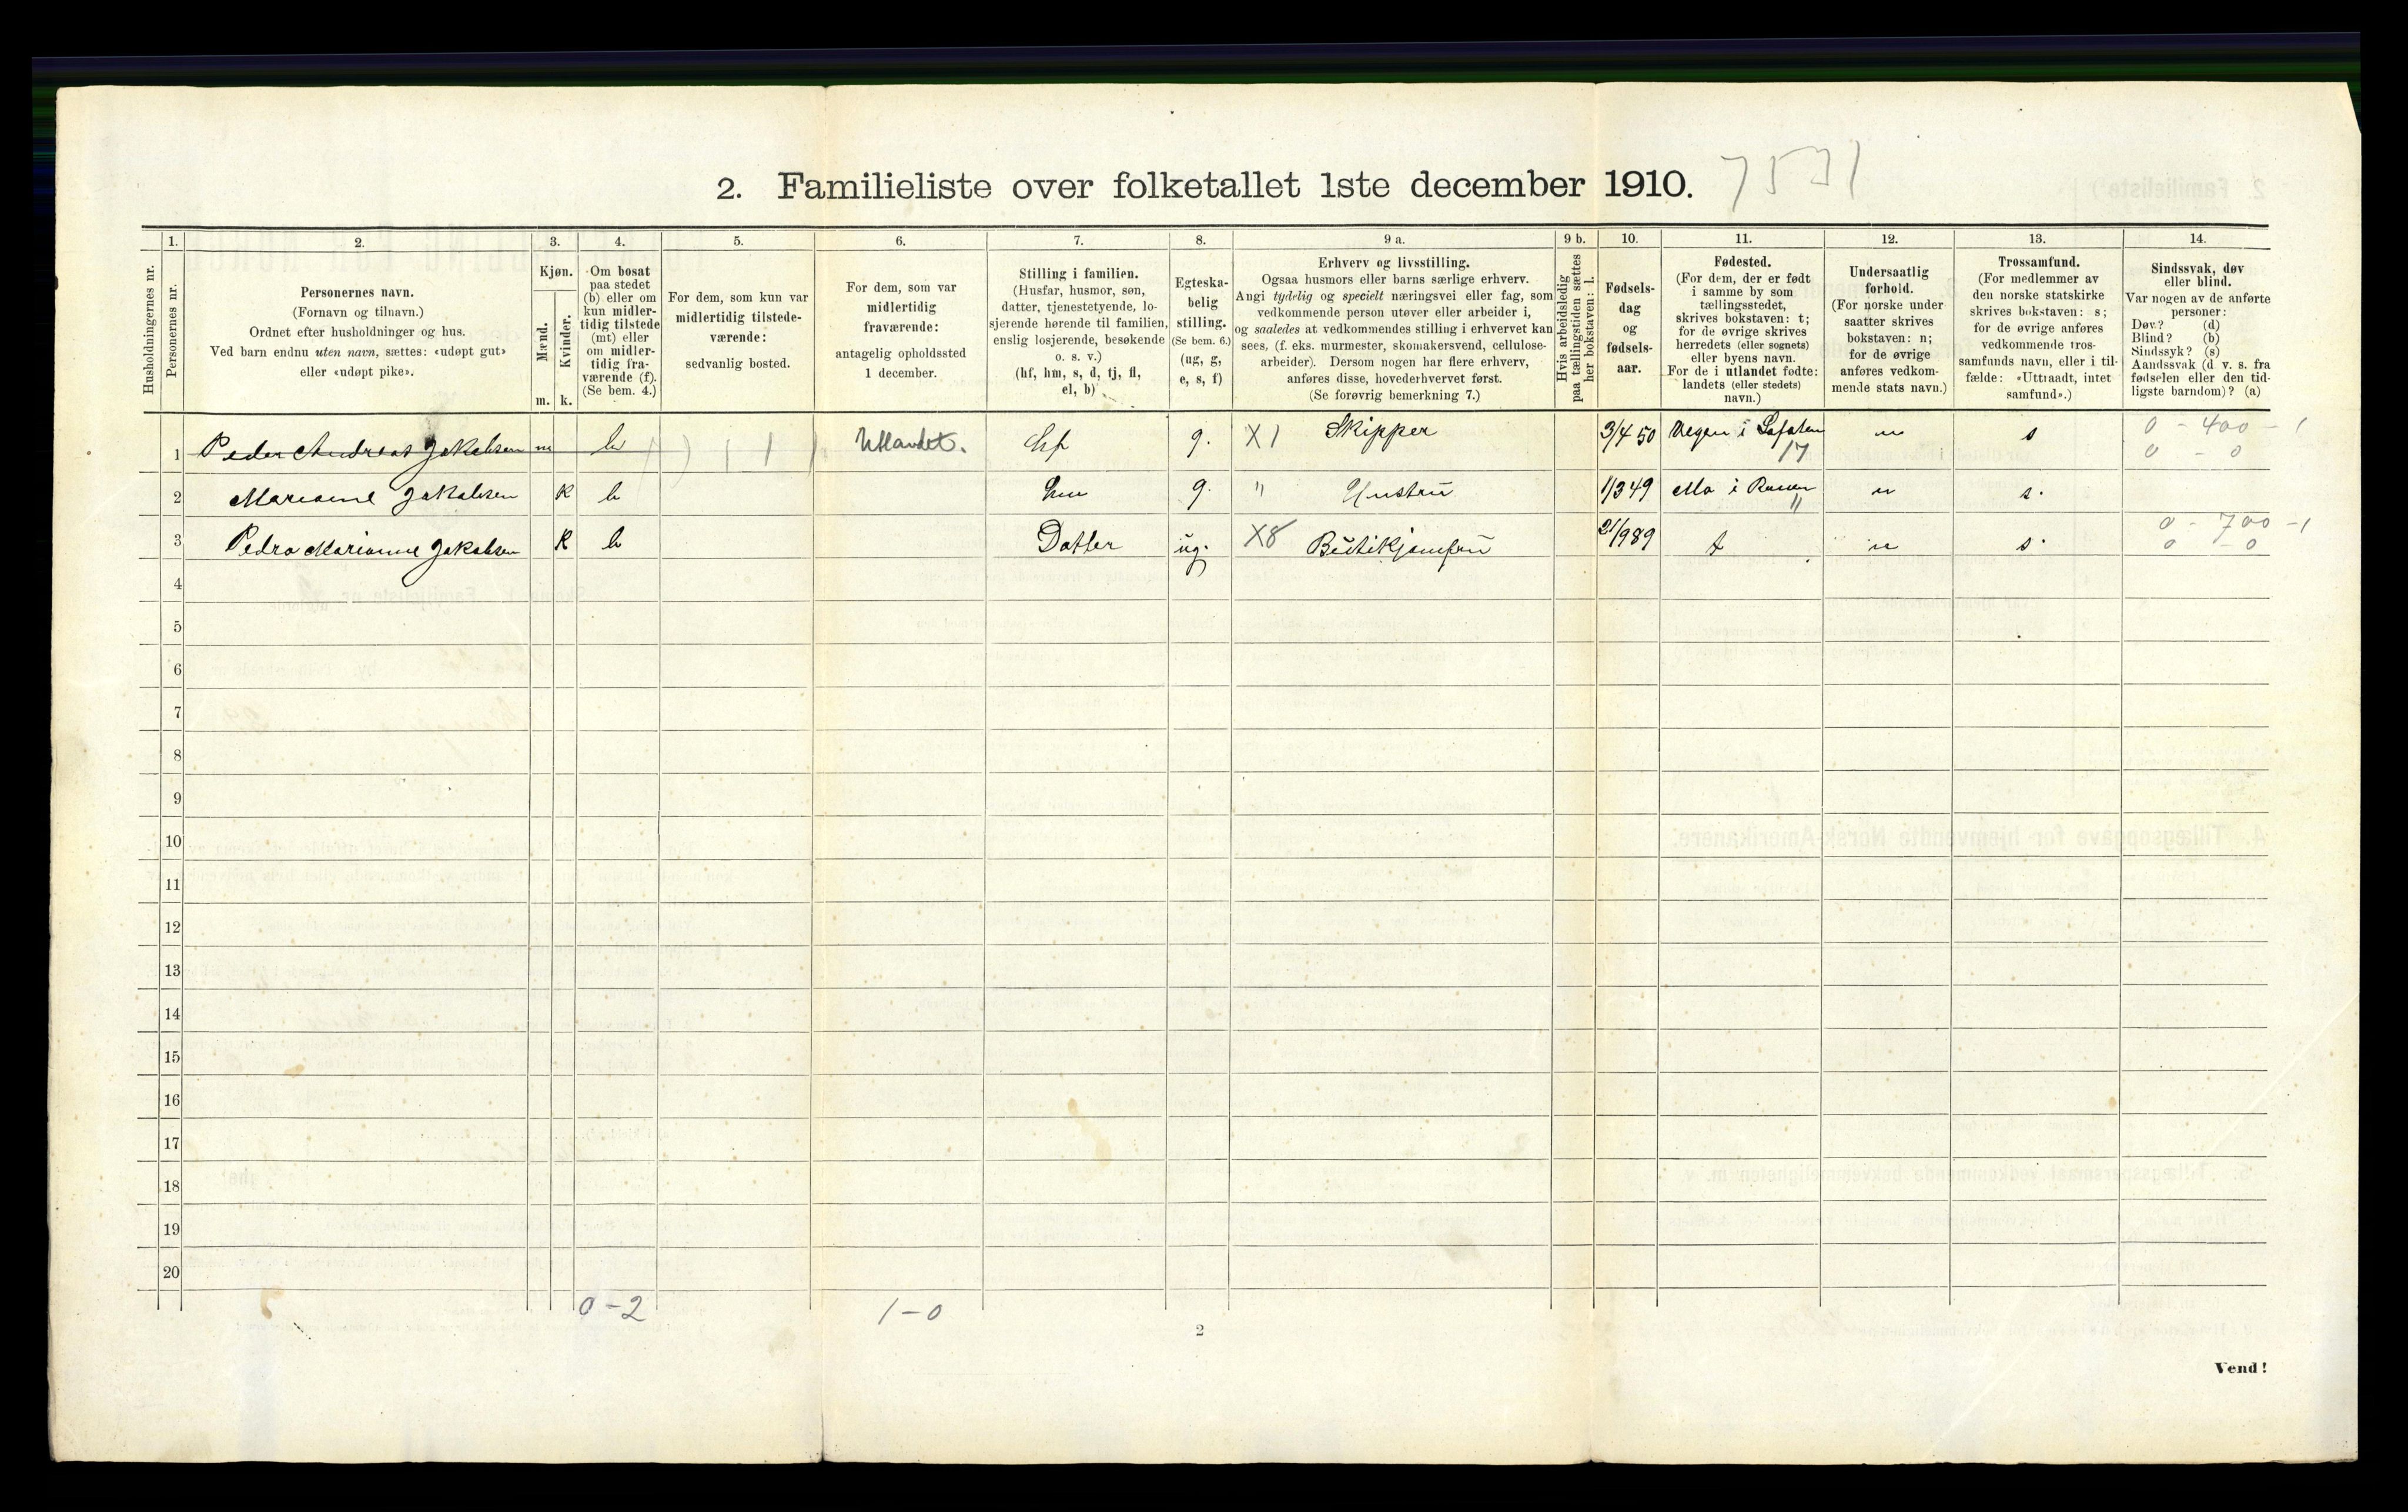 2. Familieliste over folketallet 1ste december 1910. 7531
Husholdningernes nr.
1. 2. 3. 4. 5. 6. 7. 8. 9 a. 9 b. 10. 11. 12. 13. 14.
Personernes nr.
Personernes navn.
(Fornavn og tilnavn.)
Ordnet efter husholdninger og hus.
Ved barn endnu uten navn, sættes: «udøpt gut»
eller «udøpt pike».
Kjøn.
Mænd.
Kvinder.
m. k.
Om bosat
paa stedet
(b) eller om
kun midler-
tidig tilstede
(mt) eller
om midler-
tidig fra-
værende (f).
(Se bem. 4.)
For dem, som kun var
midlertidig tilstede-
værende:
sedvanlig bosted.
For dem, som var
midlertidig
fraværende:
antagelig opholdssted
1 december.
Stilling i familien.
(Husfar, husmor, søn,
datter, tjenestetyende, lo-
sjerende hørende til familien,
enslig losjerende, besøkende
o. s. v.)
(hf, hm, s, d, tj, fl,
el, b)
Egteska-
belig
stilling.
(Se bem. 6.)
(ug, g,
e, s, f)
Erhverv og livsstilling.
Ogsaa husmors eller barns særlige erhverv.
Angi tydelig og specielt næringsvei eller fag, som
vedkommende person utøver eller arbeider i,
og saaledes at vedkommendes stilling i erhvervet kan
sees, (f. eks. murmester, skomakersvend, cellulose-
arbeider). Dersom nogen har flere erhverv,
anføres disse, hovederhvervet først.
(Se forøvrig bemerkning 7.)
Hvis arbeidsledig
paa tællingstiden sættes
her bokstaven: l.
Fødsels-
dag
og
fødsels-
aar.
Fødested.
(For dem, der er født
i samme by som
tællingsstedet,
skrives bokstaven: t;
for de øvrige skrives
herredets (eller sognets)
eller byens navn.
For de i utlandet fødte:
landets (eller stedets)
navn.)
Undersaatlig
forhold.
(For norske under
saatter skrives
bokstaven: n;
for de øvrige
anføres vedkom-
mende stats navn.)
Trossamfund.
(For medlemmer av
den norske statskirke
skrives bokstaven: s;
for de øvrige anføres
vedkommende tros-
samfunds navn, eller i til-
fælde: «Uttraadt, intet
samfund».)
Sindssvak, døv
eller blind.
Var nogen av de anførte
personer:
Døv? (d)
Blind? (b)
Sindssyk? (s)
Aandssvak (d v. s. fra
fødselen eller den tid-
ligste barndom)? (a)
1 Peder Andreas Jakobsen m b Utlandet. hf g. X1 Skipper 3/4 50 i Lofoten 17 n s 0 - 400 - 1
0 - 0
2 Marianne Jakobsen K b hm g. " Hustru 1/3 49 Mo i Ranen " n s.
3 Pedra Marianne Jakobsen K b Datter ug. X8 Butikjomfru 21/9 89 t n s. 0 - 700 - 1
0 - 0
4
5
6
7
8
9
10
11
12
13
14
15
16
17
18
19
20
0 - 2 1 - 0
2
Vend!